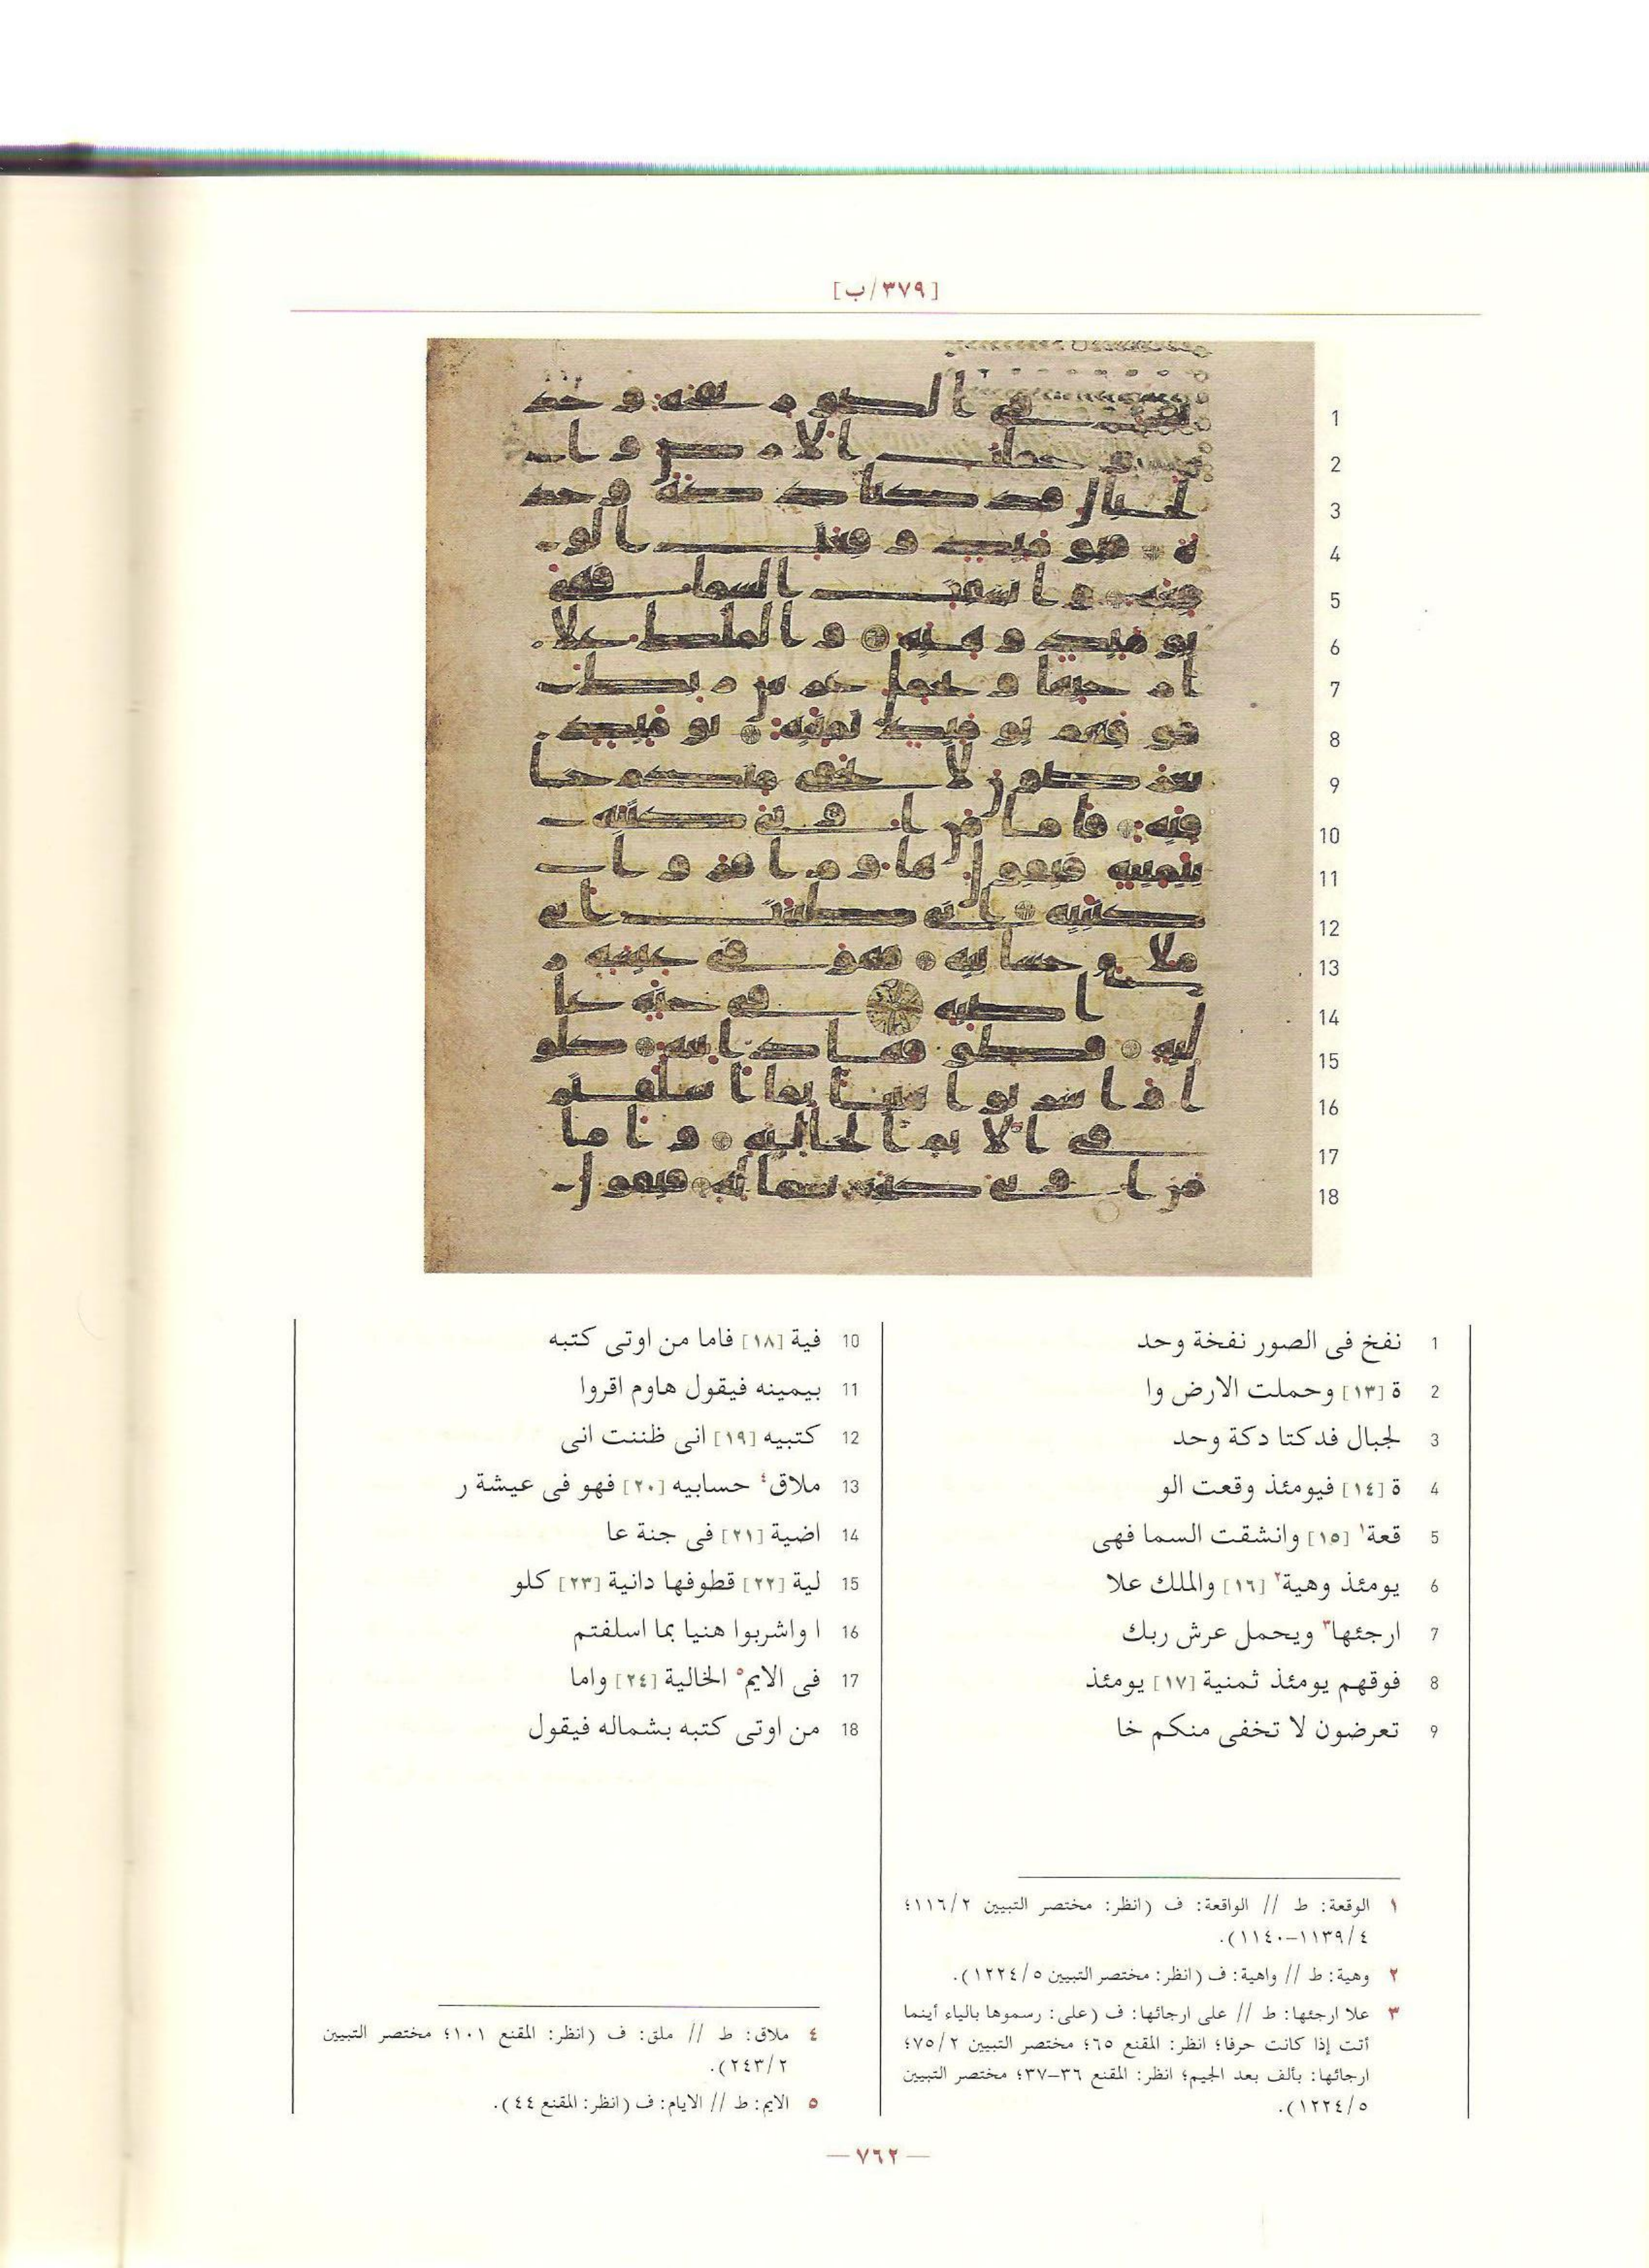 [٣٧٩/ب]
1 نفخ فى الصور نفخة وحد
2 ة [١٣] وحملت الارض وا
3 لجبال فدكتا دكة وحد
4 ة [١٤] فيومئذ وقعت الو
5 قعة١ [١٥] وانشقت السما فهى
6 يومئذ وهية٢ [١٦] والملك علا
7 ارجئها٣ ويحمل عرش ربك
8 فوقهم يومئذ ثمنية [١٧] يومئذ
9 تعرضون لا تخفى منكم خا
10 فية [١٨] فاما من اوتى كتبه
11 بيمينه فيقول هاوم اقروا
12 كتبيه [١٩] انى ظننت انى
13 ملاق٤ حسابيه [٢٠] فهو فى عيشة ر
14 اضية [٢١] فى جنة عا
15 لية [٢٢] قطوفها دانية [٢٣] كلو
16 ا واشربوا هنيا بما اسلفتم
17 فى الايم٥ الخالية [٢٤] واما
18 من اوتى كتبه بشماله فيقول
١ الوقعة: ط // الواقعة: ف (انظر: مختصر التبيين ١١٦/٢؛
١١٣٩/٤-١١٤٠).
٢ وهية: ط // واهية: ف (انظر: مختصر التبيين ١٢٢٤/٥).
٣ علا ارجئها: ط // على ارجائها: ف (على: رسموها بالياء أينما
أتت إذا كانت حرفا؛ انظر: المقنع ٦٥؛ مختصر التبيين ٧٥/٢؛
ارجائها: بألف بعد الجيم؛ انظر: المقنع ٣٦-٣٧؛ مختصر التبيين
١٢٢٤/٥).
٤ ملاق: ط // ملق: ف (انظر: المقنع ١٠١؛ مختصر التبيين
٢٤٣/٢).
٥ الايم: ط // الايام: ف (انظر: المقنع ٤٤).
— ٧٦٢ —